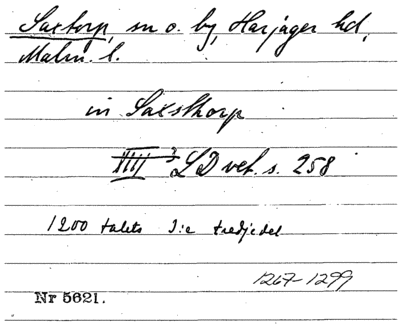 Saxtorp, sn o. by, Harjager hd,
Malm. l.
in Saxsthorp
XIII 3 LD vet. s. 258
1200 talets 3:e tredjedel
1267-1299
Nr 5621.